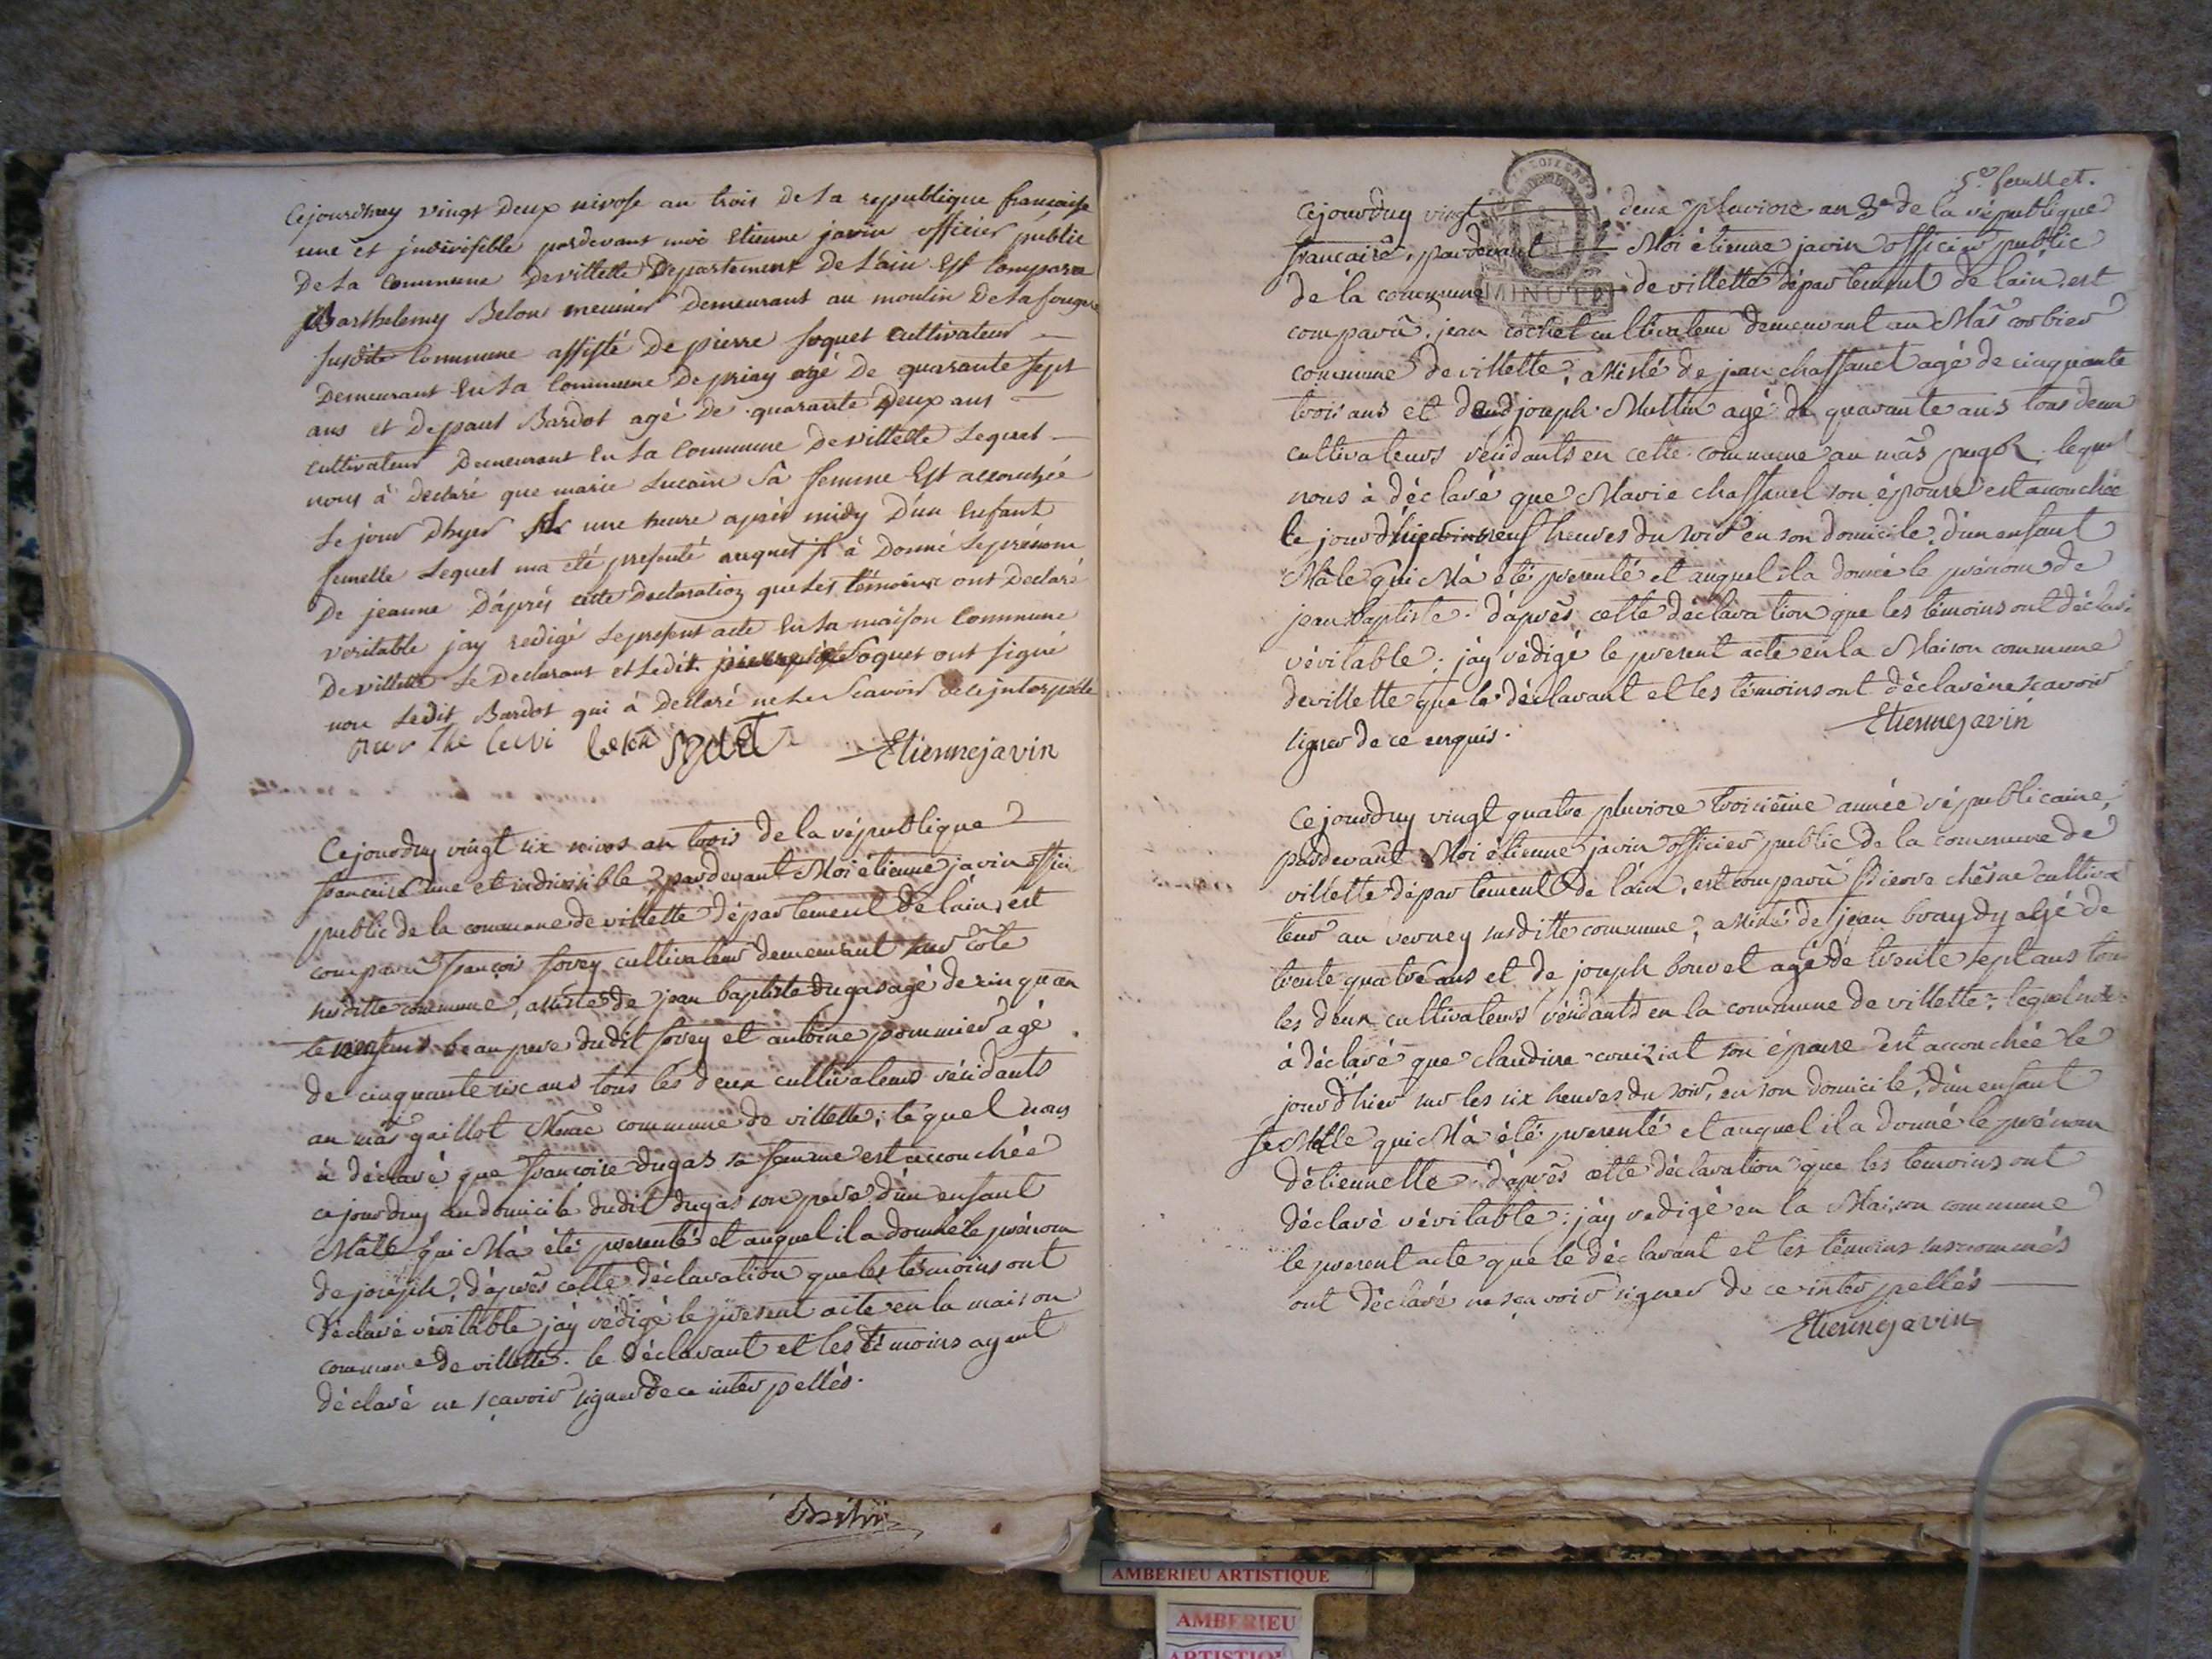 Cejourdhuy vingt Deux nivose an trois De la republique francaise
une et jndivisible pardevant moi Etienne javin officier public
De la Commune De villette Departement De L'ain Est Comparu
Barthelemy Belon meunier Demeurant au moulin De la fougere
susdite Commune assisté De pierre foquet Cultivateur
Demeurant En La Commune De priay agé De quarante sept
ans et De paul Bardot agé De quarante Deux ans
cultivateur Demeurant En La Commune De villette Lequel
nous à Declaré que marie Lucain sà femme Est accouchée
Le jour Dhyer une heure après midy D'un Enfant
femelle Lequel ma été presenté auquel jl à Donné Le prénom
De jeanne D'après cette Declaration que Les témoins ont Declaré
veritable jay redigé Le present acte En La maison Commune
De villette Le Declarant et Ledit pierre foquet ont signé
non Ledit Bardot qui à Declaré ne Le scavoir de ce jnterpellé
Etienne javin
Cejourduy vingt six nivos an trois de la république
francaise une et indivisible pardevant Moi étienne javin offici
public de la commune de villette département de láin, est
comparu françois fovey cultivateur demeurant sur côte
susditte commune, assisté de jean baptiste dugas agé de cinquan
te neuf ans beau pere dudit fovey et antoine pommier agé
de cinquante six ans tous les deux cultivateurs résidants
au mas gaillot commune de villette; lequel nous
à déclaré que francoise dugas sa femme est accouchée
cejourduy au domicile dudit dugas son pere d'un enfant
Mâle qui M'à été presenté et auquel il a donné le prénom
de joseph, d'après cette déclaration que les témoins ont
déclaré véritable j'ay rédigé le present acte en la maison
commune de villette. le déclarant et les témoins ayant
déclaré ne sçavoir signer de ce interpellés.
5e feuillet.
Cejourduy vingt deux pluviose an 3e de la république
francaise, pardevant Moi étienne javin officier public
de la commune de villette département de láin, est
MINUTE
comparu jean cochet cultivateur demeurant au Mas corbier
commune de villette, assisté de jean chaffanel agé de cinquante
trois ans et de joseph Muttin agé de quarante ans tous deux
cultivateurs résidants en cette commune au mas lequel
nous à déclaré que Marie chaffanel son épouse est accouchée
le jour d'hier neuf heures du soir en son domicile, d'un enfant
Mâle qui M'à été presenté et auquel il a donné le prénom de
jean baptiste. d'après cette déclaration que les témoins ont déclaré
véritable; j'ay rédigé le present acte en la Maison commune
de villette que le déclarant et les témoins ont déclaré ne scavoir
signer de ce enquis.
Etienne javin
Cejourduy vingt quatre pluviose troisieme année républicaine,
pardevant Moi étienne javin officier public de la commune de
villette département de láin, est comparu Pierre chêne cultiva
teur au verney susditte commune, assisté de jean agé de
trente quatre ans et de joseph bouvet agé de trente sept ans tou
les deux cultivateurs résidants en la commune de villette; lequel nous
à déclaré que claudine convizat son épouse est accouchée le
jour d'hier sur les six heures du soir, en son domicile, d'un enfant
feMelle qui M'à été presenté et auquel il a donné le prénom
d'étiennette. d'après cette déclaration que les temoins ont
déclaré véritable; j'ay redigé en la Maison commune
le present acte que le déclarant et les témoins susnommés
ont déclaré ne sçavoir signer de ce interpellés
Etienne javin
AMBERIEU ARTISTIQUE
AMBERIEU
ARTISTIQUE